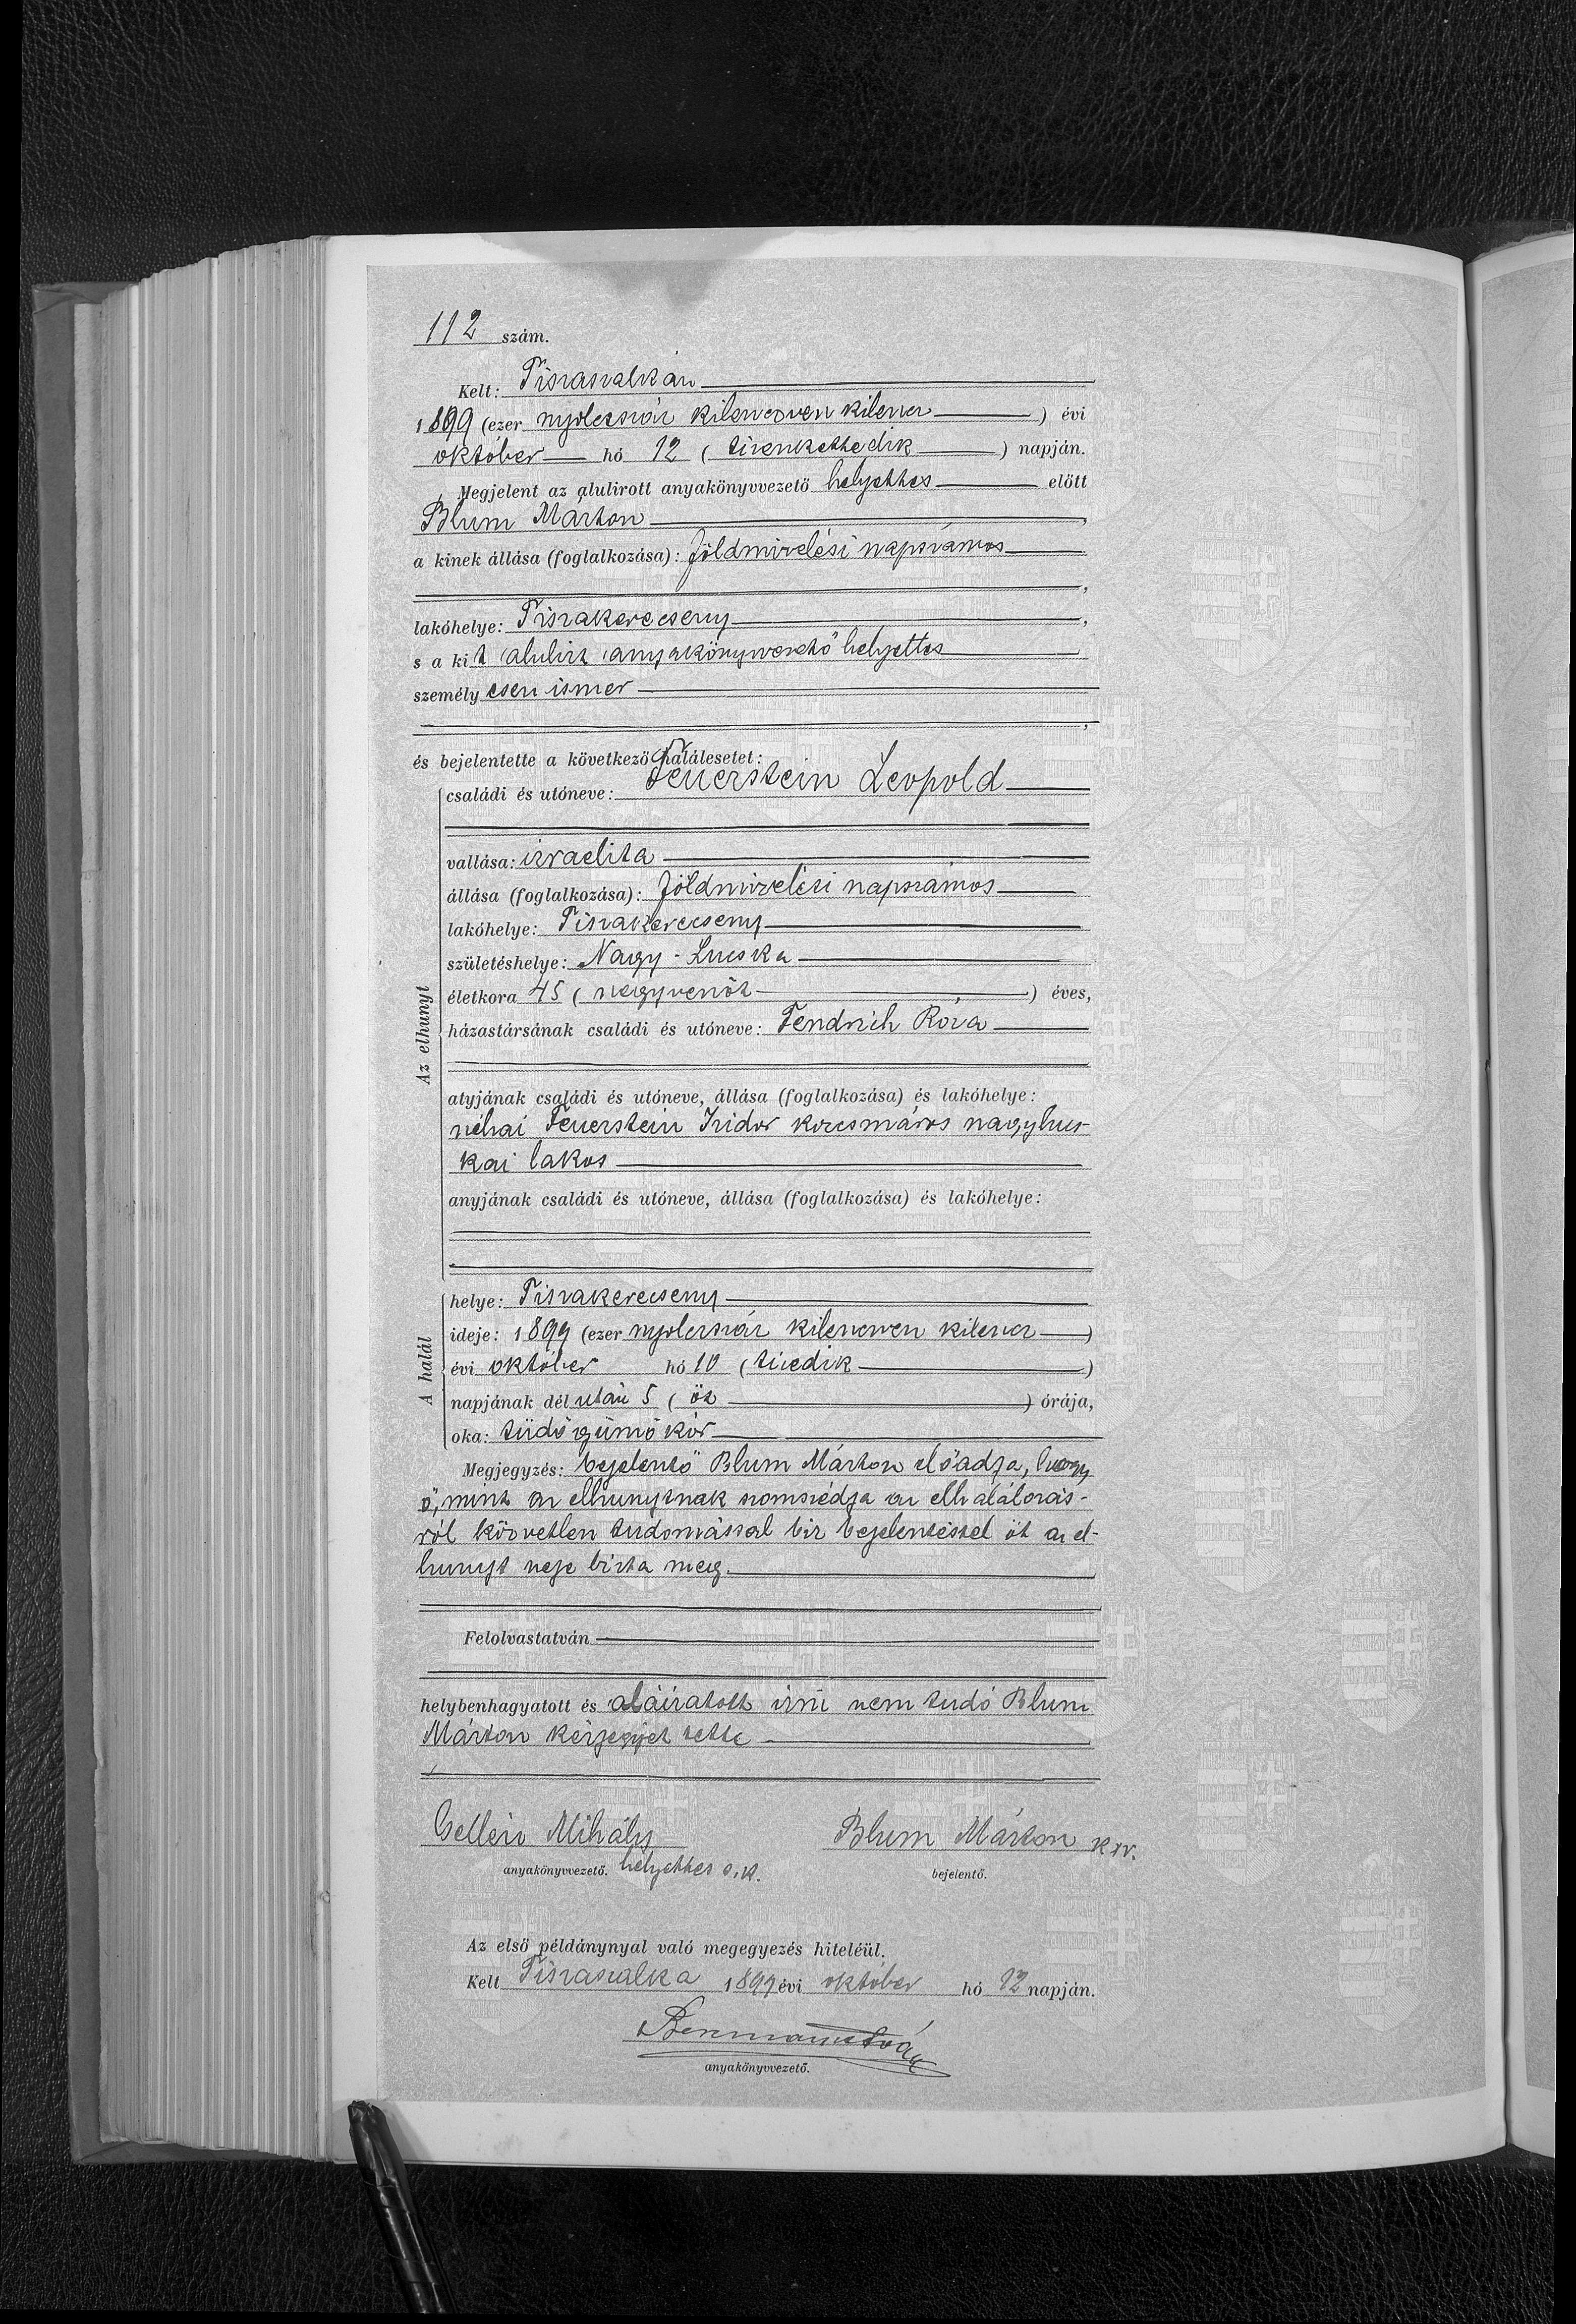 112 szám.
Kelt: Tiszaszalkán
1899 (ezer nyolczszáz kilenczven kilencz) évi
október hó 12 (tizenkettedik) napján.
Megjelent az alulirott anyakönyvvezető helyettes előtt
Blum Márton,
a kinek állása (foglalkozása): földmivelési napszámos
,
lakóhelye: Tiszakerecseny,
s a kit alulirt anyakönyvvezető helyettes
személyesen ismer
,
és bejelentette a következő halálesetet:
Az elhunyt
családi és utóneve: Feuerstein Leopold
vallása: izraelita
állása (foglalkozása): földmivelési napszámos
lakóhelye: Tiszakerecseny
születéshelye: Nagy-Lucska
életkora 45 (negyvenöt) éves,
házastársának családi és utóneve: Fendrich Róza
atyjának családi és utóneve, állása (foglalkozása) és lakóhelye:
néhai Feuerstein Izidor korcsmáros nagylucs-
kai lakos
anyjának családi és utóneve, állása (foglalkozása) és lakóhelye:
A halál
helye: Tiszakerecseny
ideje: 1899 (ezer nyolczszáz kilenczven kilencz)
évi október hó 10 (tizedik)
napjának dél után 5 (öt) órája,
oka: tüdőgümőkór
Megjegyzés: bejelentő Blum Márton előadja, hogy
ő, mint az elhunytnak szomszédja az elhalálozás-
ról közvetlen tudomással bir bejelentéssel őt az el-
hunyt neje bizta meg.
Felolvastatván
helybenhagyatott és aláiratott irni nem tudó Blum
Márton kézjegyét tette
Gellén Mihály
anyakönyvvezető. helyettes s.k.
Blum Márton kzv.
bejelentő.
Az első példánynyal való megegyezés hiteléül.
Kelt Tiszaszalka 1899 évi október hó 12 napján.
anyakönyvvezető.